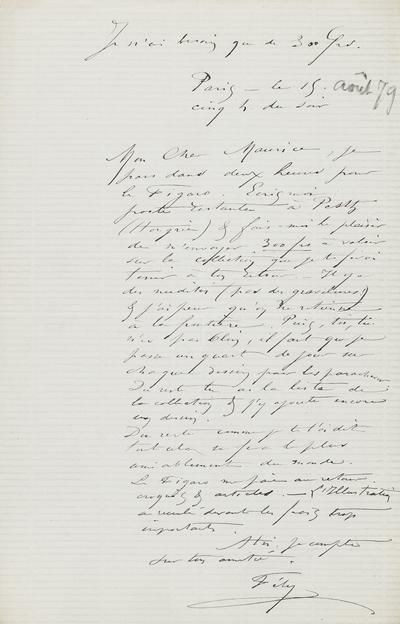 Je n'ai besoin que de 300 frs.
Paris – le 15 août 79
cinq h du soir
Mon Cher Maurice, je
pars dans deux heures pour
le Figaro. Ecris moi
poste restante à Pesth
(Hongrie) & fais-moi le plaisir
de m'envoyer 300 frs à valoir
sur la collection que je te ferai
tenir à ton retour. – Il y a
des nudités (pas des gravelures!)
& j'ai peur qu'on ne les retienne
à la frontière. Puis, toi, tu
n'es pas Clouz, il faut que je
passe un quart de jour sur
chaque dessin pour les parachever
Du reste tu as la liste de
la collection & j'y ajoute encore
un dessin.
Du reste comme je te l'ai dit
tout cela se fera le plus
aimablement du monde.
Le Figaro me paie au retour
croquis & articles. – L'Illustration
a reculé devant les frais trop
importants.
A toi, je compte
sur ton amitié.
Fély